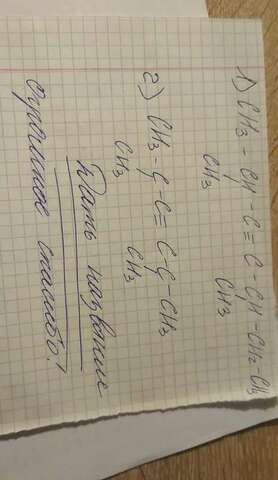 1) CH3 - CH - C ≡ C - CH - CH2 - CH3
CH3 CH3
2) CH3 - C - C ≡ C - C - CH3
CH3 CH3
Дать название
Огромное спасибо!